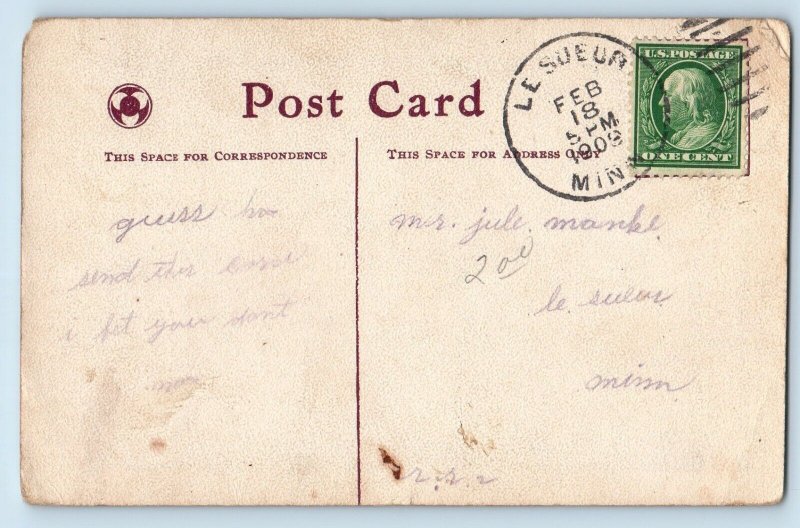 Post Card
THIS SPACE FOR CORRESPONDENCE
THIS SPACE FOR ADDRESS ONLY
LE SUEUR
FEB
18
PM
1909
MINN
U.S. POSTAGE
ONE CENT
guess ho
send this
i bet you dont
mr. jule manke
2 00
le sueur
minn